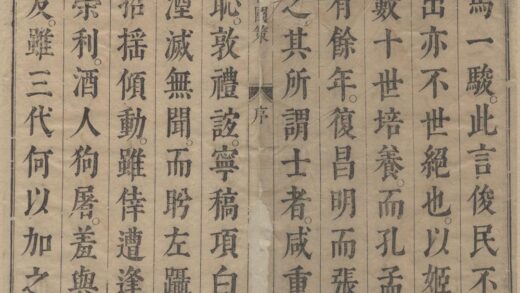 馬一駿。此言俊民不
出亦不世絕也。以姬
數十世培養。而孔孟
有餘年。復昌明而張
國策 序
之。其所謂士者。咸重
恥。敦禮誼。寧稿項白
湮滅無聞。而盻左躡
招搖傾動。雖倖遭逢
榮利。酒人狗屠。羞與
友。雖三代何以加之